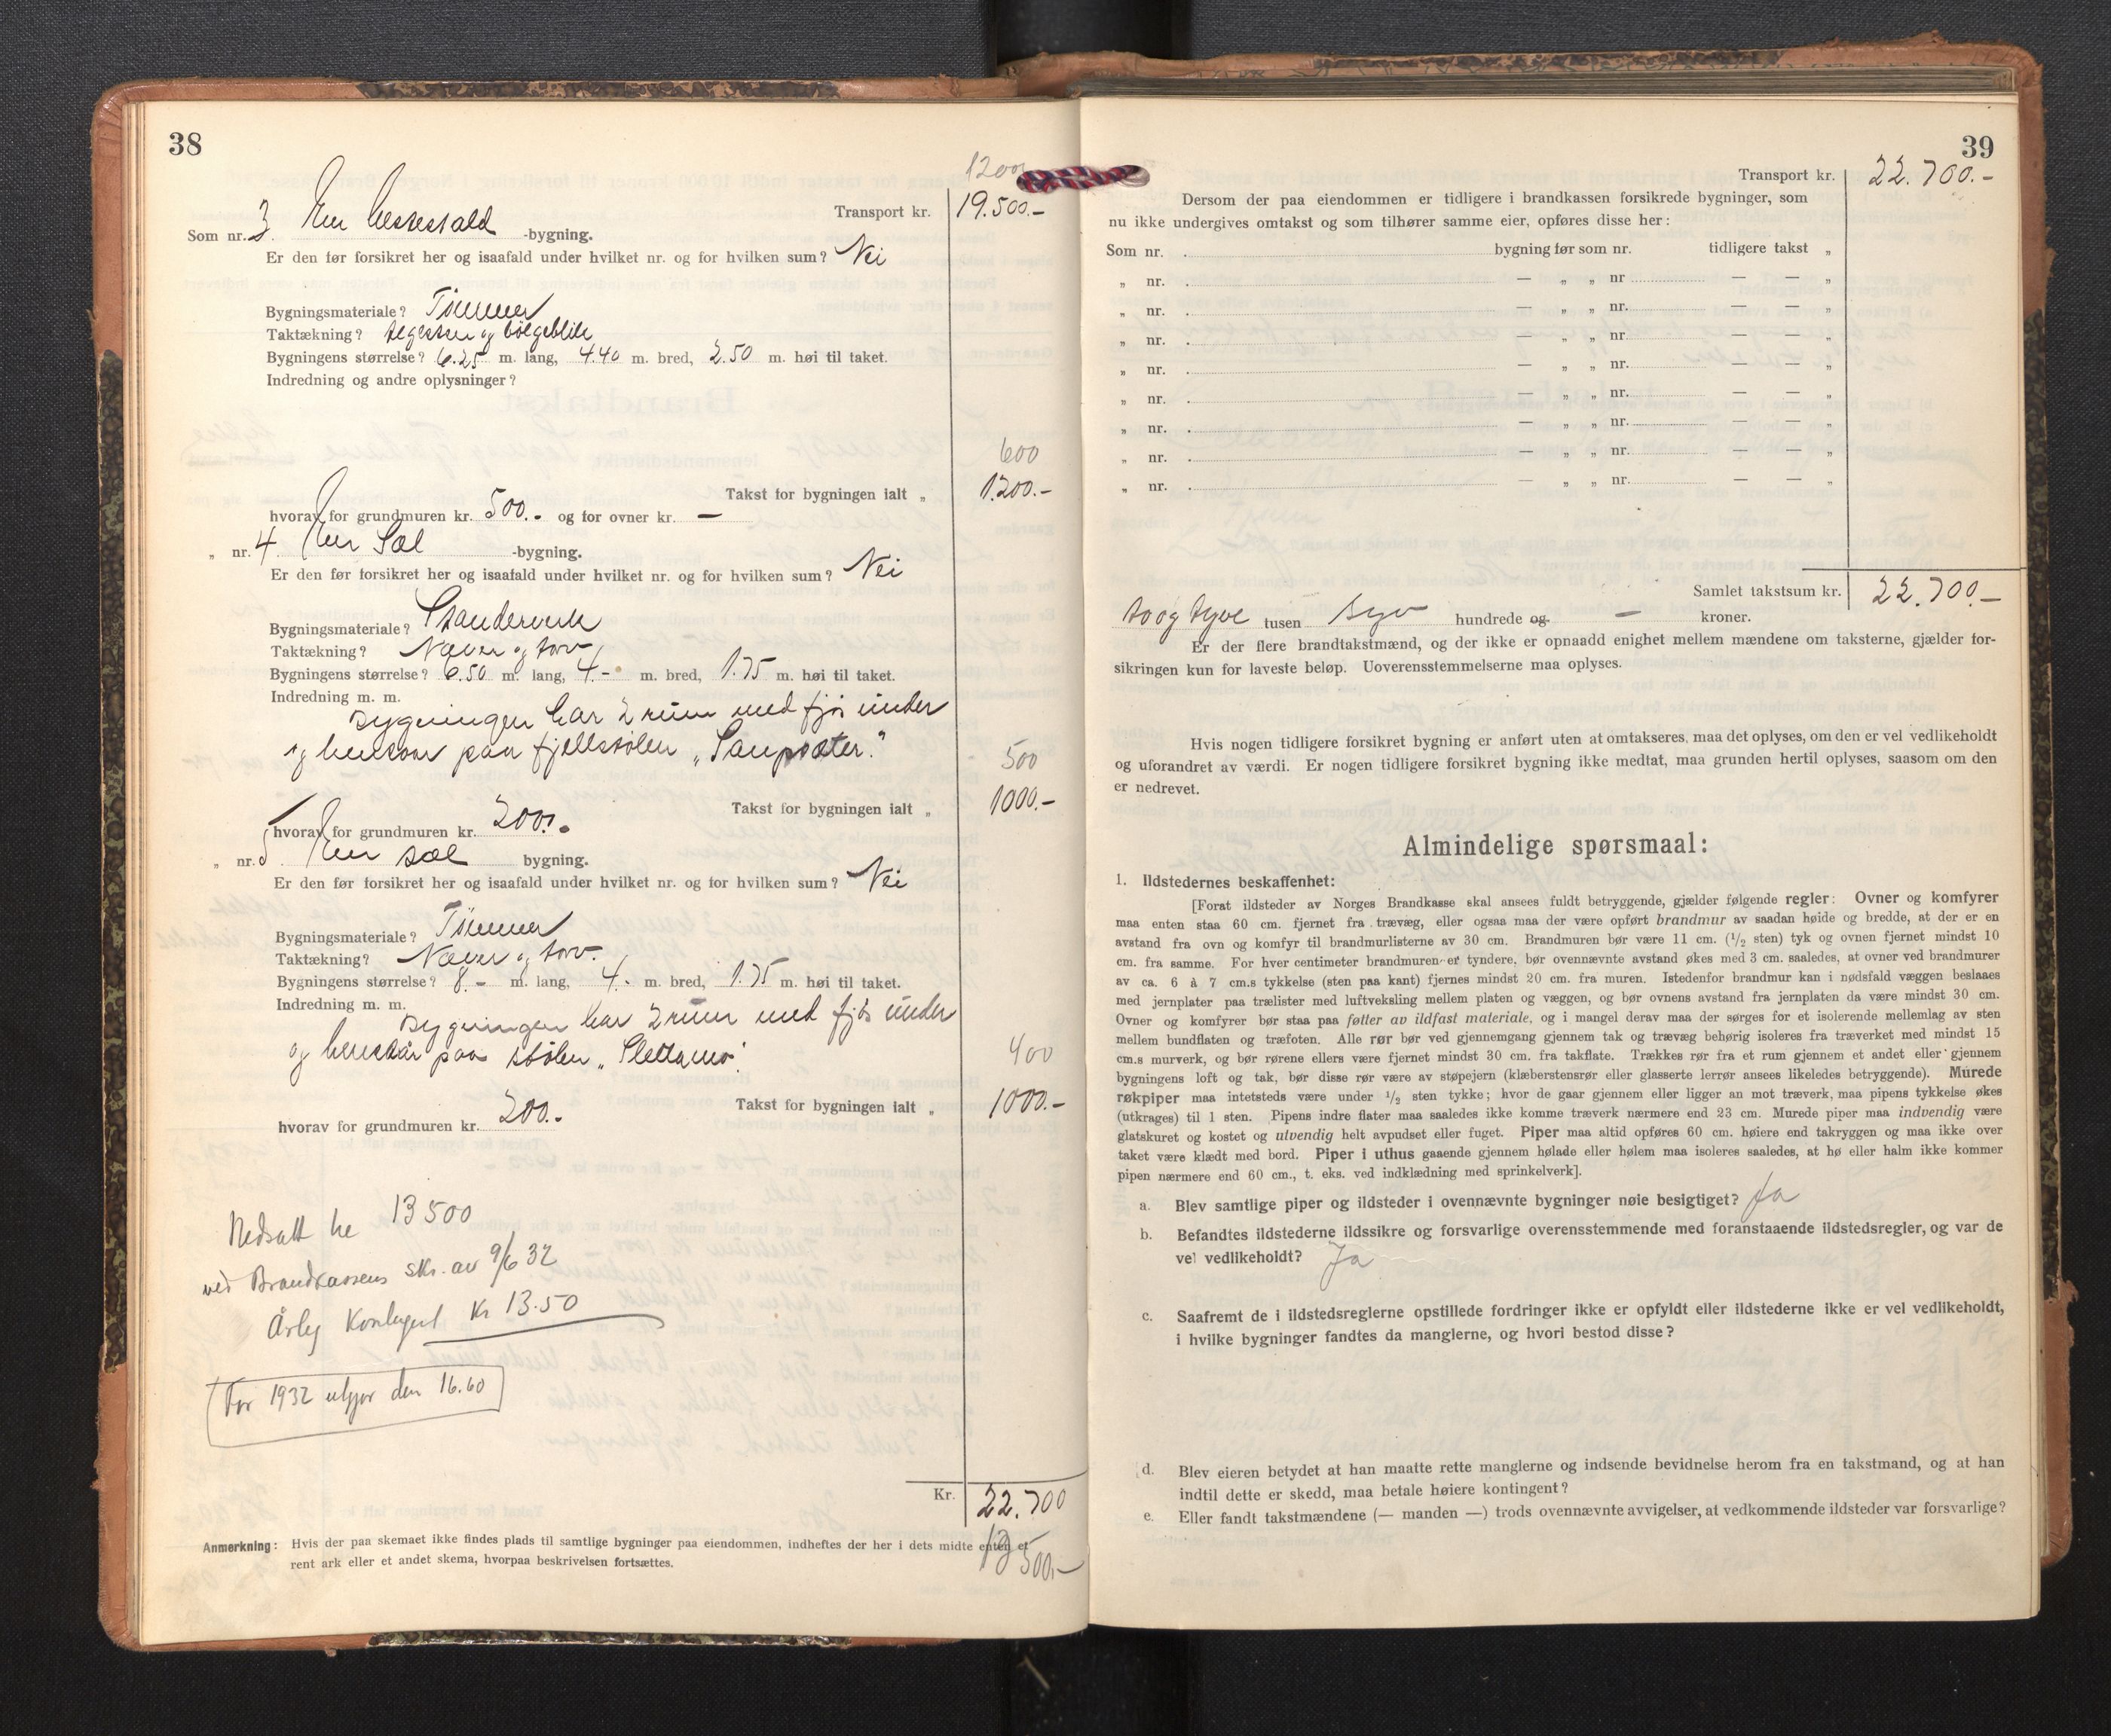 38
1200
Transport kr. 19.500.-
Som nr. 3. En hestestald -bygning.
Er den før forsikret her og isaafald under hvilket nr. og for hvilken sum? Nei
Bygningsmateriale? Tømmer
Taktækning? tegesten og bølgeblik
Bygningens størrelse? 6.25 m. lang, 4.40 m. bred, 2.50 m. høi til taket.
Indredning og andre oplysninger?
600
Takst for bygningen ialt „ 1.200.-
hvorav for grundmuren kr. 500.- og for ovner kr. —
„ nr. 4. En Sæl -bygning.
Er den før forsikret her og isaafald under hvilket nr. og for hvilken sum? Nei
Bygningsmateriale? Standerverk
Taktækning? Næver og torv
Bygningens størrelse? 6.50 m. lang, 4.- m. bred, 1.75 m. høi til taket.
Indredning m. m.
Bygningen har 2 rum med fjøs under
og henstaar paa fjellstølen „
500
Takst for bygningen ialt „ 1000.-
hvorav for grundmuren kr. 200.-
„ nr. 5 En sæl bygning.
Er den før forsikret her og isaafald under hvilket nr. og for hvilken sum? Nei
Bygningsmateriale? Tømmer
Taktækning? Næver og torv.
Bygningens størrelse? 8.- m. lang, 4.- m. bred, 1.75 m. høi til taket.
Indredning m. m.
Bygningen har 2 rum med fjøs under
og henstår paa stølen „
400
Takst for bygningen ialt „ 1000.-
hvorav for grundmuren kr. 200.-
Nedsatt kr 13500
ved Brandkassens skr. av 9/6 32
Årleg Kontingent kr 13.50
For 1932 utgjør den 16.60
Kr. 22.700
13 500.-
Anmerkning: Hvis der paa skemaet ikke findes plads til samtlige bygninger paa eiendommen, indheftes der her i dets midte enten et
rent ark eller et andet skema, hvorpaa beskrivelsen fortsættes.
39
Transport kr. 22.700.-
Dersom der paa eiendommen er tidligere i brandkassen forsikrede bygninger, som
nu ikke undergives omtakst og som tilhører samme eier, opføres disse her:
Som nr. . bygning før som nr. tidligere takst „
„ nr. . — „ „ nr — — „
„ nr. . — „ „ nr. — — „
„ nr. . — „ „ nr. — — „
„ nr. . — „ „ nr. — — „
„ nr. . — „ „ nr. — — „
„ nr. . — „ „ nr. — — „
„ nr. . — „ „ nr. — — „
„ nr. . — „ „ nr. — — „
Samlet takstsum kr. 22.700.-
to og tyve tusen syv hundrede og — kroner.
Er der flere brandtakstmænd, og der ikke er opnaadd enighet mellem mændene om taksterne, gjælder for-
sikringen kun for laveste beløp. Uoverensstemmelserne maa oplyses.
Hvis nogen tidligere forsikret bygning er anført uten at omtakseres, maa det oplyses, om den er vel vedlikeholdt
og uforandret av værdi. Er nogen tidligere forsikret bygning ikke medtat, maa grunden hertil oplyses, saasom om den
er nedrevet.
Almindelige spørsmaal:
1. Ildstedernes beskaffenhet:
[Forat ildsteder av Norges Brandkasse skal ansees fuldt betryggende, gjælder følgende regler: Ovner og komfyrer
maa enten staa 60 cm. fjernet fra trævæg, eller ogsaa maa der være opført brandmur av saadan høide og bredde, at der er en
avstand fra ovn og komfyr til brandmurlisterne av 30 cm. Brandmuren bør være 11 cm. (1/2 sten) tyk og ovnen fjernet mindst 10
cm. fra samme. For hver centimeter brandmuren er tyndere, bør ovennævnte avstand økes med 3 cm. saaledes, at ovner ved brandmurer
av ca. 6 à 7 cm.s tykkelse (sten paa kant) fjernes mindst 20 cm. fra muren. Istedenfor brandmur kan i nødsfald væggen beslaaes
med jernplater paa trælister med luftveksling mellem platen og væggen, og bør ovnens avstand fra jernplaten da være mindst 30 cm.
Ovner og komfyrer bør staa paa føtter av ildfast materiale, og i mangel derav maa der sørges for et isolerende mellemlag av sten
mellem bundflaten og træfoten. Alle rør bør ved gjennemgang gjennem tak og trævæg behørig isoleres fra træverket med mindst 15
cm.s murverk, og bør rørene ellers være fjernet mindst 30 cm. fra takflate. Trækkes rør fra et rum gjennem et andet eller gjennem
bygningens loft og tak, bør disse rør være av støpejern (klæberstensrør eller glasserte lerrør ansees likeledes betryggende). Murede
røkpiper maa intetsteds være under 1/2 sten tykke; hvor de gaar gjennem eller ligger an mot træverk, maa pipens tykkelse økes
(utkrages) til 1 sten. Pipens indre flater maa saaledes ikke komme træverk nærmere end 23 cm. Murede piper maa indvendig være
glatskuret og kostet og utvendig helt avpudset eller fuget. Piper maa altid opføres 60 cm. høiere end takryggen og maa ikke over
taket være klædt med bord. Piper i uthus gaaende gjennem hølade eller hølem maa isoleres saaledes, at hø eller halm ikke kommer
pipen nærmere end 60 cm., t. eks. ved indklædning med sprinkelverk].
a. Blev samtlige piper og ildsteder i ovennævnte bygninger nøie besigtiget? Ja
b. Befandtes ildstederne ildssikre og forsvarlige overensstemmende med foranstaaende ildstedsregler, og var de
vel vedlikeholdt? Ja
c. Saafremt de i ildstedsreglerne opstillede fordringer ikke er opfyldt eller ildstederne ikke er vel vedlikeholdt,
i hvilke bygninger fandtes da manglerne, og hvori bestod disse?
d. Blev eieren betydet at han maatte rette manglerne og indsende bevidnelse herom fra en takstmand, og at han
indtil dette er skedd, maa betale høiere kontingent?
e. Eller fandt takstmændene (— manden —) trods ovennævnte avvigelser, at vedkommende ildsteder var forsvarlige?